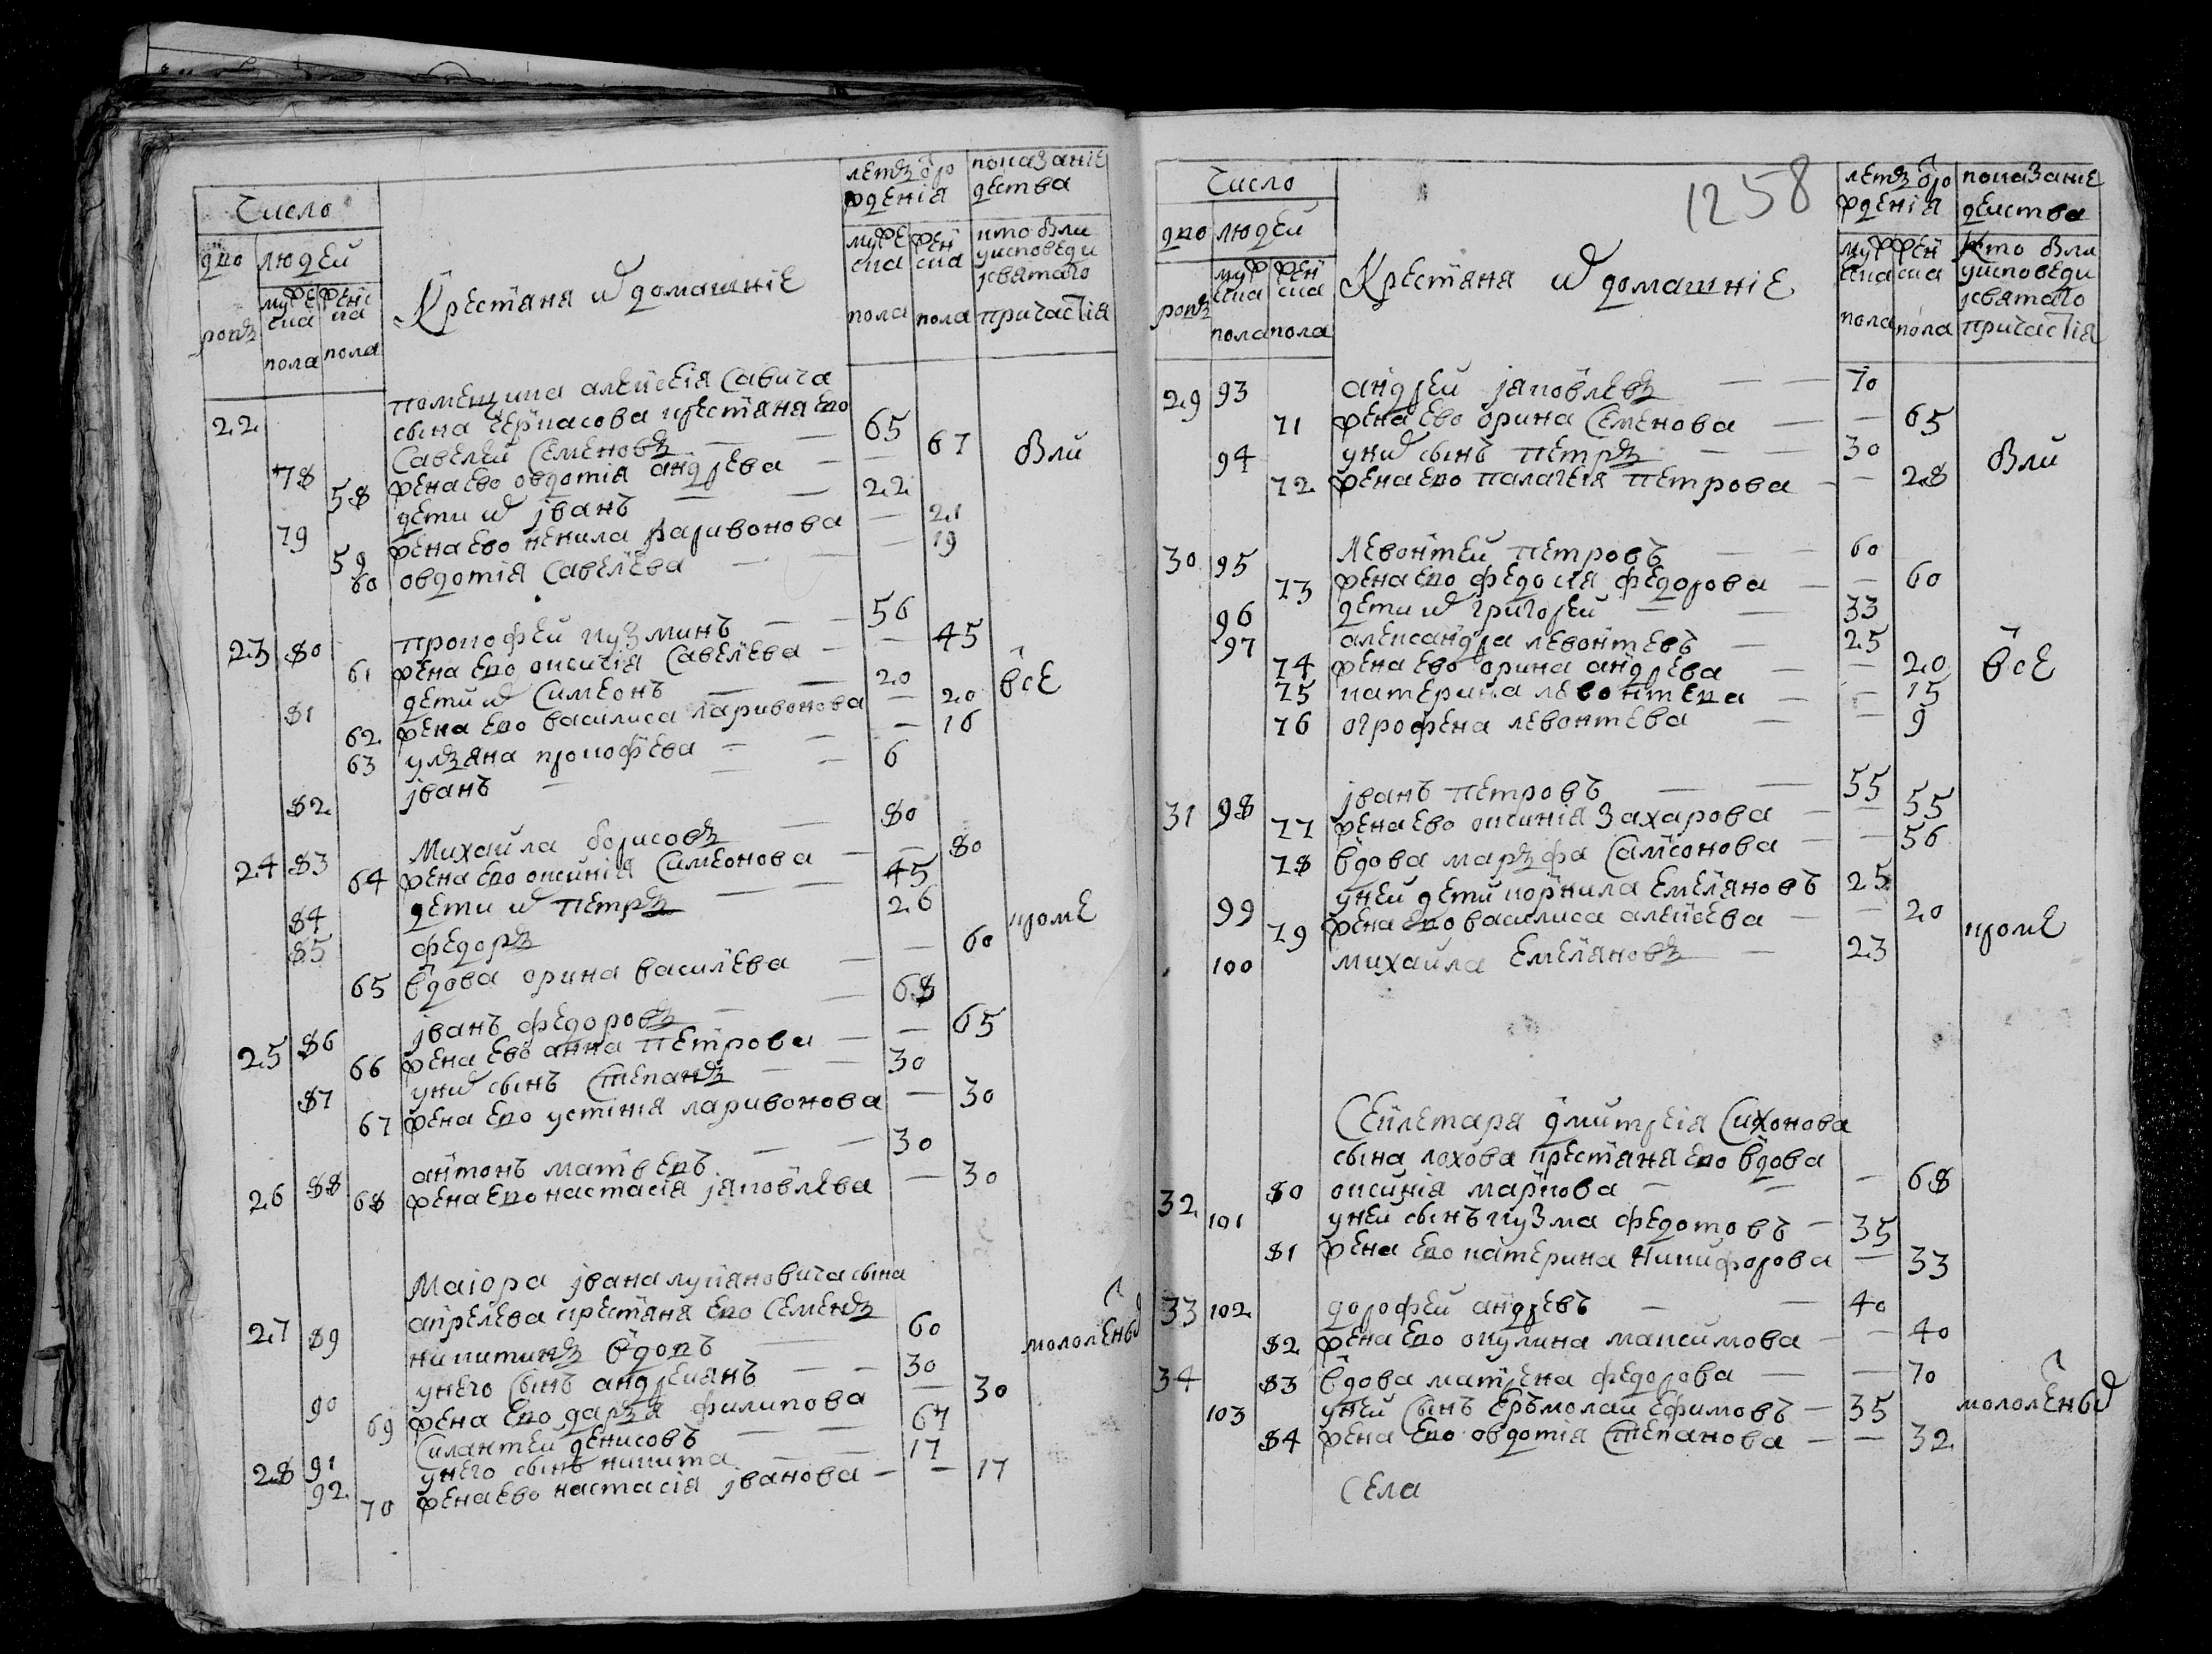 число
дво
ровъ
людей
мужеска
пола
женска
пола
Крестьяня и домашние
летъ о рождения
мужеска
пола
женска
пола
показание
действа
кто были
у исповеди
и святаго
причастия
помещика алексея Савича
22 сына Черкасова крестьяня ево
78 Савелей Семеновъ — 65
58 жена ево овдотия андреева — 67 были
79 дети их иванъ — 22
59 жена ево ненила ларивонова — 21
60 овдотия Савельева — 19
23 80 прокофей кузминъ — 56
61 жена ево оксиния Савельева — 45
81 дети их Симеонъ — 20 все
62 жена ево василиса ларивонова — 20
63 ульяна прокофьева — 16
82 иванъ — 6
24 83 Михайла борисовъ — 80
64 жена ево оксиния Симеонова — 80
84 дети их петръ — 45
85 федоръ 26 кроме
65 вдова орина васильева — 60
25 86 иванъ федоровъ — 68
66 жена ево анна петрова — 65
87 у них сынъ Степанъ — 30
67 жена ево устиния ларивонова — 30
26 88 антонъ матвеевъ — 30
68 жена ево настасия яковлева — 30
Маиора ивана лукяновича сына
апрелева крестьяня ево Семенъ
27 89 никитинъ вдовъ — 60 малолетных
90 у него сынъ андреянъ — 30
69 жена ево дарья филипова — 30
28 91 Силантей денисовъ — 67
92 у него сынъ никита — 17
70 жена ево настасия иванова — 17
1258
число
дво
ровъ
людей
мужеска
пола
женска
пола
Крестьяня и домашние
летъ о рождения
мужеска
пола
женска
пола
показание
действа
кто были
у исповеди
и святаго
причастия
29 93 андрей яковлевъ — 70
71 жена ево орина Семенова — 65
94 у них сынъ петръ — 30 были
72 жена ево палагея петрова — 28
30 95 Левонтей петровъ — 60
73 жена ево федосия федорова — 60
96 дети их григорей — 33
97 александра левонтевъ — 25
74 жена ево орина андреева — 20 все
75 катерина левонтева — 15
76 огрофена левонтева — 9
31 98 иванъ петровъ — 55
77 жена ево оксиния захарова — 55
78 вдова марфа Самсонова — 56
99 у ней дети корнила Емельяновъ 25
79 жена ево василиса алексеева — 20 кроме
100 михайла Емельяновъ — 23
Секлетаря дмитрея Сихонова
сына лохова крестьяня ево вдова
32 80 оксиния маркова — 68
101 у ней сынъ кузма федотовъ — 35
81 жена ево катерина Никифорова — 33
33 102 дорофей андреевъ — 40
82 жена ево окулина максимова — 40
34 83 вдова матрена федорова — 70
103 у ней сынъ Еръмолаи Ефимовъ — 35 малолетных
84 жена ево овдотия Степанова — 32
Села